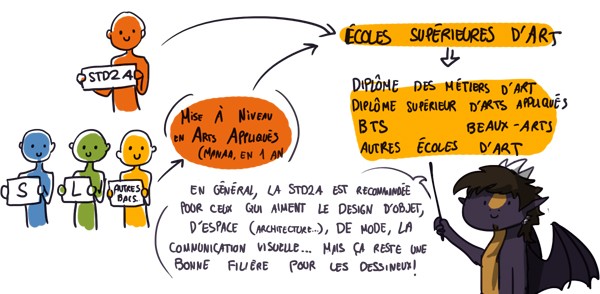 STD2A
ÉCOLES SUPÉRIEURES D'ART
DIPLÔME DES MÉTIERS D'ART
DIPLÔME SUPÉRIEUR D'ARTS APPLIQUÉS
BTS BEAUX-ARTS
AUTRES ÉCOLES D'ART
MISE À NIVEAU
EN ARTS APPLIQUÉS
(MANAA, EN 1 AN
S
L
AUTRES
BACS.
EN GÉNÉRAL, LA STD2A EST RECOMMANDÉE
POUR CEUX QUI AIMENT LE DESIGN D'OBJET,
D'ESPACE (ARCHITECTURE...), DE MODE, LA
COMMUNICATION VISUELLE... MAIS ÇA RESTE UNE
BONNE FILIÈRE POUR LES DESSINEUX!